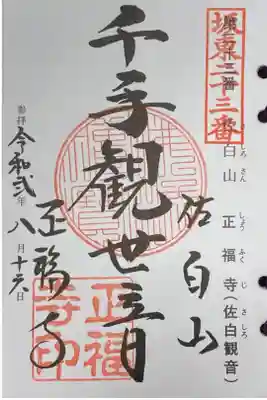 坂東二十三番
白山 正福寺(佐白観音)
しろ さん しょう ふく じ さしろ
佐白山
千手観世音
正福寺
令和弐年八月十六日
正福寺印